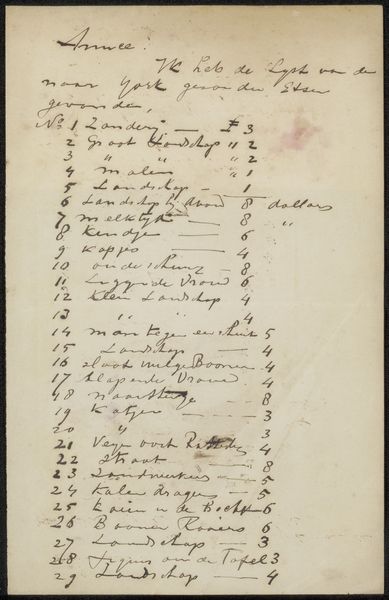 Annee:
Ik heb de Lyst van de
naar York gezonden Etsen
gevonden,
No 1 Zanderij — £ 3
2 Groot Landschap " 2
3 " " " 2
4 Molen " 1
5 Landschap - 1
6 Landschap bij Avond 8 dollars
7 melktyd — 8 "
8 Kindje — 6
9 Kopjes — 4
10 oude schuur — 8
11 Liggende Vrouw 6
12 Klein Landschap 4
13 " " 4
14 man tegen een schuit 5
15 Landschap — 4
16 sloot wilge Boomen 4
17 slapende Vrouw 4
18 — 8
19 Katjes — 3
20 " 3
21 4
22 Straat — 8
23 Landwerkers — 5
24 Kolen dragers — 5
25 Koeien in de Bocht 6
26 Boomen Rooiers 6
27 Landschap — 3
28 om de Tafel 3
29 Landschap — 4